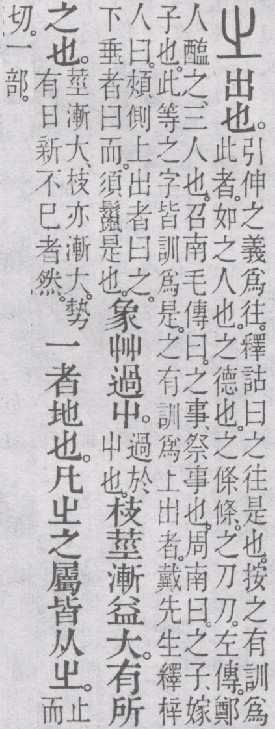 㞢出也。
引伸之義爲往。釋詁曰之往是也。按之有訓爲
此者。如之人也。之德也。之條條。之刀刀。左傳鄭
人醢之三人也。召南毛傳曰。之事、祭事也。周南曰。之子、嫁
子也。此等之字皆訓爲是。之有訓爲上出者。戴先生釋梓
人曰。頰側上出者曰之。
下垂者曰而。須鬣是也。
象艸過屮。
過於
屮也。
枝莖漸益大。有所
之也。
莖漸大、枝亦漸大。勢
有日新不巳者然。
一者地也。凡㞢之屬皆从㞢。
止
而
切。一部。